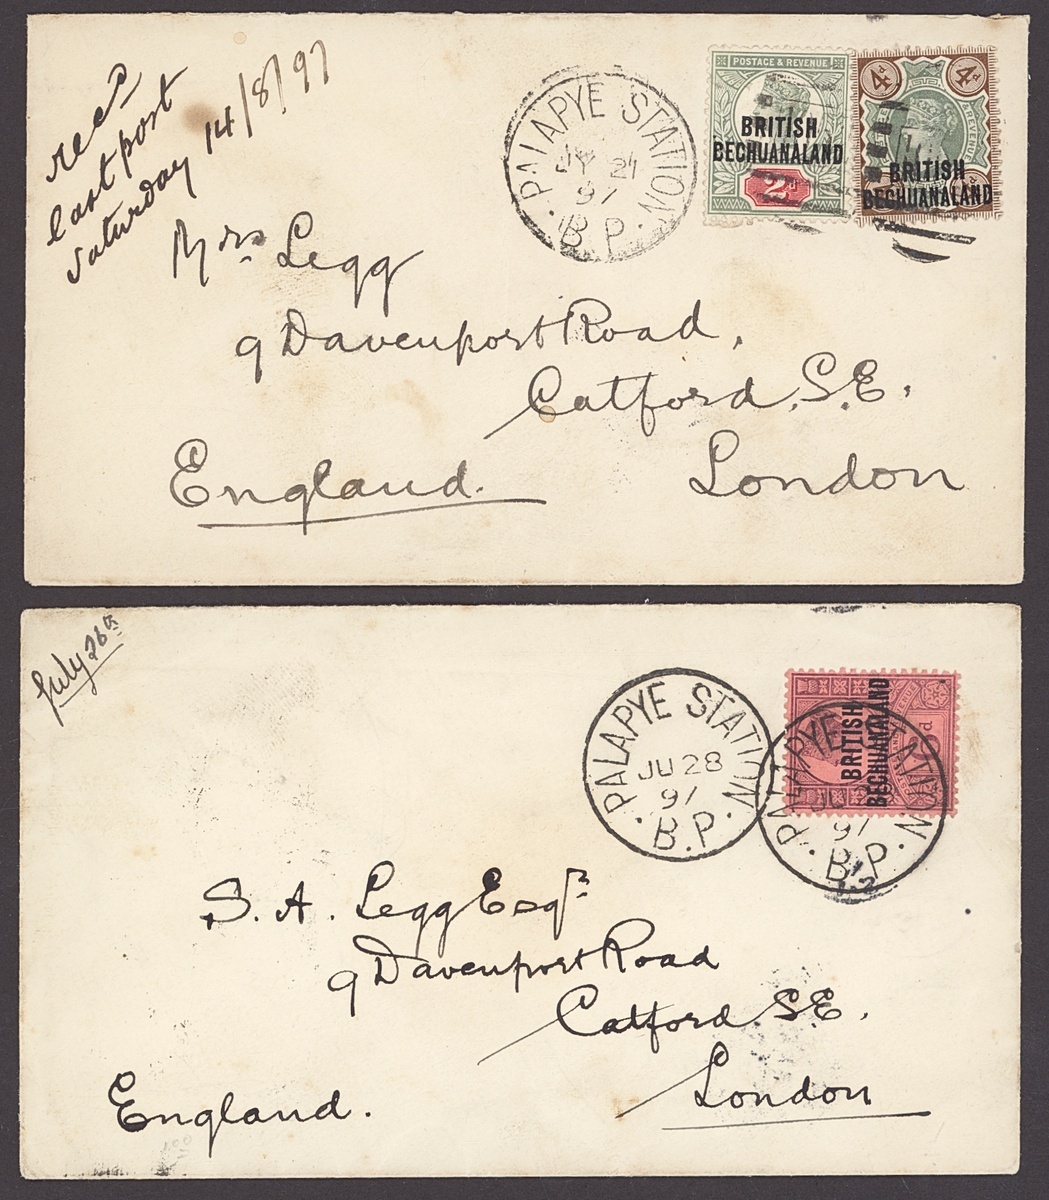 recd
last post
Saturday 14/8/97
PALAPYE STATION
JY 21
97
B.P.
POSTAGE & REVENUE
BRITISH
BECHUANALAND
2d
4d 4d
BRITISH
BECHUANALAND
Mrs Legg
9 Davenport Road,
Catford. S.E.
England.
London
July 26th
PALAPYE STATION
JU 28
97
B.P.
BRITISH
BECHUANALAND
PALAPYE STATION
97
B.P.
S. A. Legg Esqr
9 Davenport Road
Catford. S.E.
London
England.